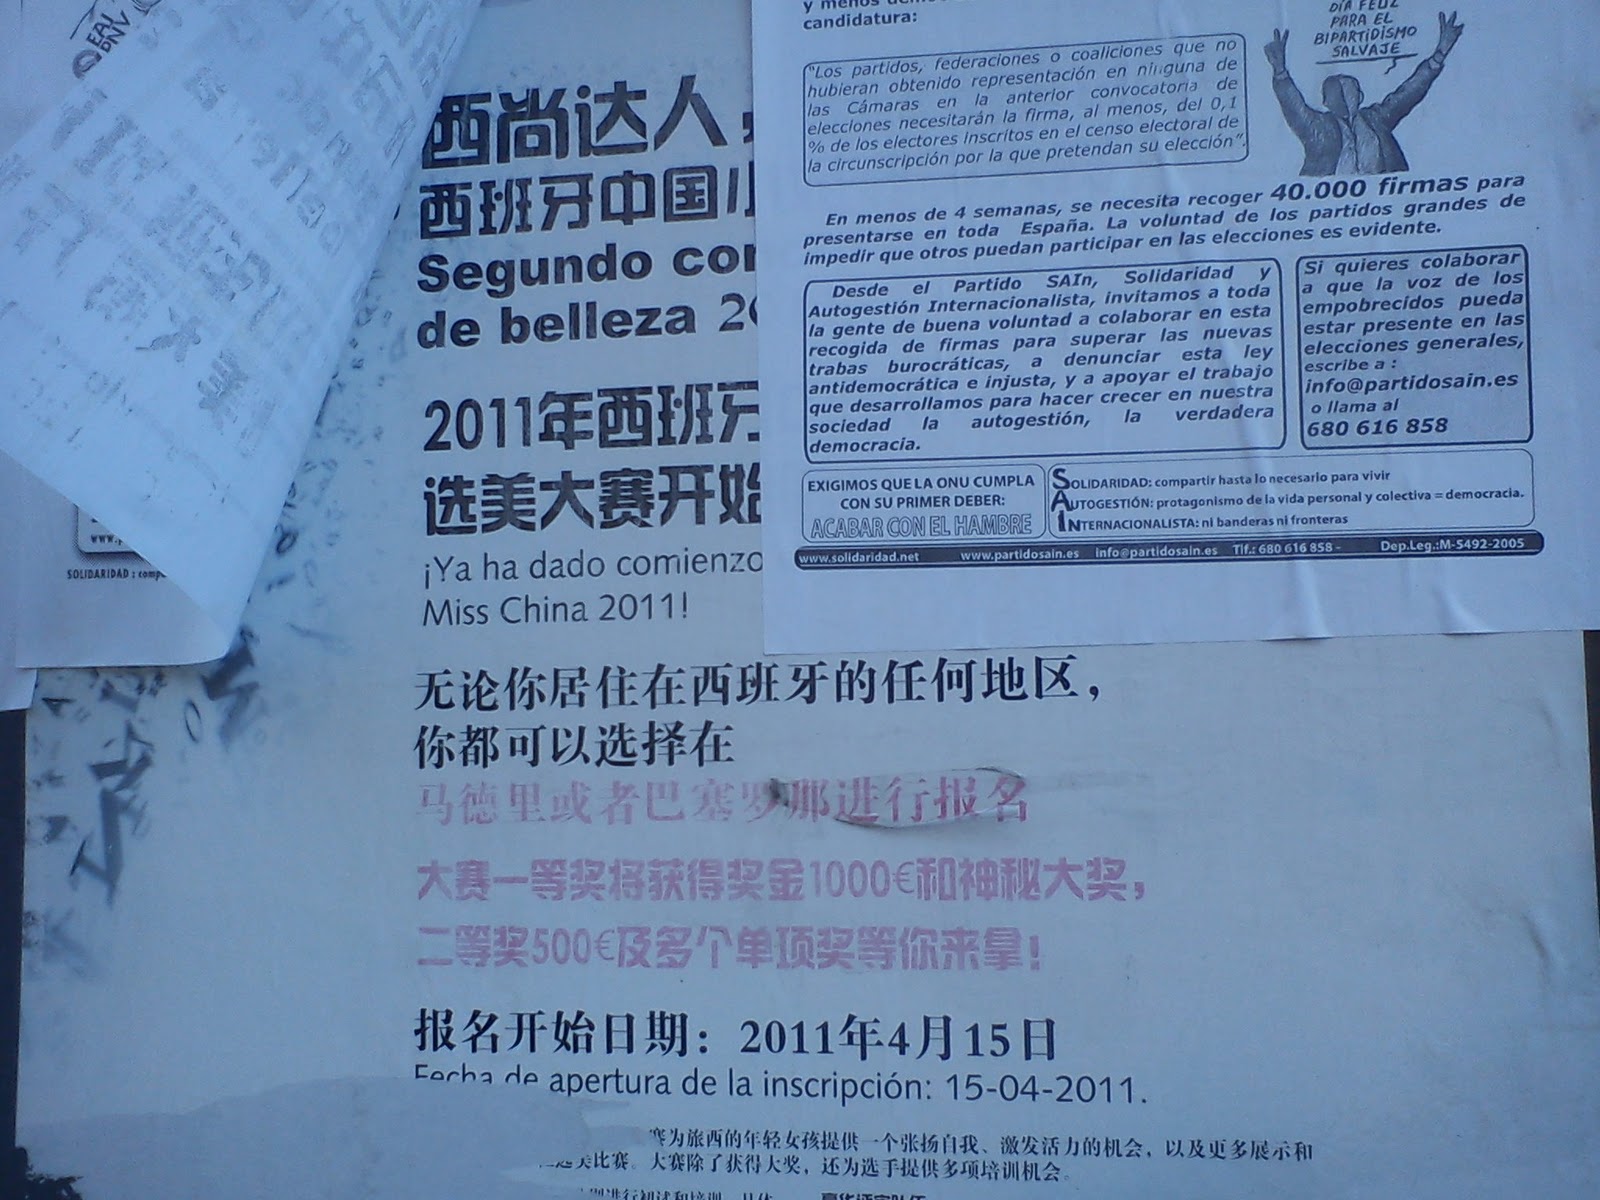 西尚达人，
西班牙中国小
Segundo con
de belleza 20
2011年西班牙
选美大赛开始
¡Ya ha dado comienzo
Miss China 2011!
无论你居住在西班牙的任何地区，
你都可以选择在
马德里或者巴塞罗那进行报名
大赛一等奖将获得奖金1000€和神秘大奖，
二等奖500€及多个单项奖等你来拿！
报名开始日期：2011年4月15日
Fecha de apertura de la inscripción: 15-04-2011.
赛为旅西的年轻女孩提供一个张扬自我、激发活力的机会，以及更多展示和
选美比赛。大赛除了获得大奖，还为选手提供多项培训机会。
y menos
candidatura:
"Los partidos, federaciones o coaliciones que no
hubieran obtenido representación en ninguna de
las Cámaras en la anterior convocatoria de
elecciones necesitarán la firma, al menos, del 0,1
% de los electores inscritos en el censo electoral de
la circunscripción por la que pretendan su elección".
DÍA FELIZ
PARA EL
BIPARTIDISMO
SALVAJE
En menos de 4 semanas, se necesita recoger 40.000 firmas para
presentarse en toda España. La voluntad de los partidos grandes de
impedir que otros puedan participar en las elecciones es evidente.
Desde el Partido SAIn, Solidaridad y
Autogestión Internacionalista, invitamos a toda
la gente de buena voluntad a colaborar en esta
recogida de firmas para superar las nuevas
trabas burocráticas, a denunciar esta ley
antidemocrática e injusta, y a apoyar el trabajo
que desarrollamos para hacer crecer en nuestra
sociedad la autogestión, la verdadera
democracia.
Si quieres colaborar
a que la voz de los
empobrecidos pueda
estar presente en las
elecciones generales,
escribe a :
info@partidosain.es
o llama al
680 616 858
EXIGIMOS QUE LA ONU CUMPLA
CON SU PRIMER DEBER:
ACABAR CON EL HAMBRE
SOLIDARIDAD: compartir hasta lo necesario para vivir
AUTOGESTIÓN: protagonismo de la vida personal y colectiva = democracia.
INTERNACIONALISTA: ni banderas ni fronteras
www.solidaridad.net www.partidosain.es info@partidosain.es Tlf.: 680 616 858 - Dep.Leg.:M-5492-2005
SOLIDARIDAD : comp